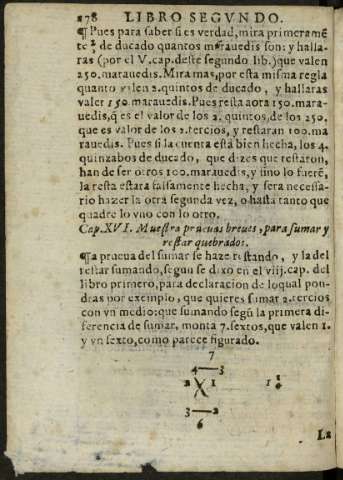 278 LIBRO SEGVNDO.
¶ Pues para saber si es verdad, mira primeramē
te ⅔ de ducado quantos marauedis son: y halla-
ras (por el V.cap.deste segundo lib.) que valen
250.marauedis. Mira mas, por esta misma regla
quanto valen 2.quintos de ducado, y hallaras
valer 150.marauedis. Pues resta aora 150.mara-
uedis, q̃ es el valor de los 2. quintos, de los 250.
que es valor de los 2.tercios, y restaran 100.ma
rauedis. Pues si la cuenta està bien hecha, los 4.
quinzabos de ducado, que dizes que restaron,
han de ser otros 100.marauedis, y sino lo fuerẽ,
la resta estara falsamente hecha, y sera necessa-
rio hazer la otra segunda vez, o hasta tanto que
quadre lo vno con lo otro.
Cap.XVI. Muestra prueuas breues, para sumar y
restar quebrados.
¶ La prueua del sumar se haze restando, y la del
restar sumando, segun se dixo en el viij.cap. del
libro primero, para declaracion de loqual pon-
dras por exemplo, que quieres sumar 2.tercios
con vn medio: que sumando segũ la primera di-
ferencia de sumar, monta 7.sextos, que valen 1.
y vn sexto, como parece figurado.
7
4 — 3
2 X 1 1
3 — 2
6
La